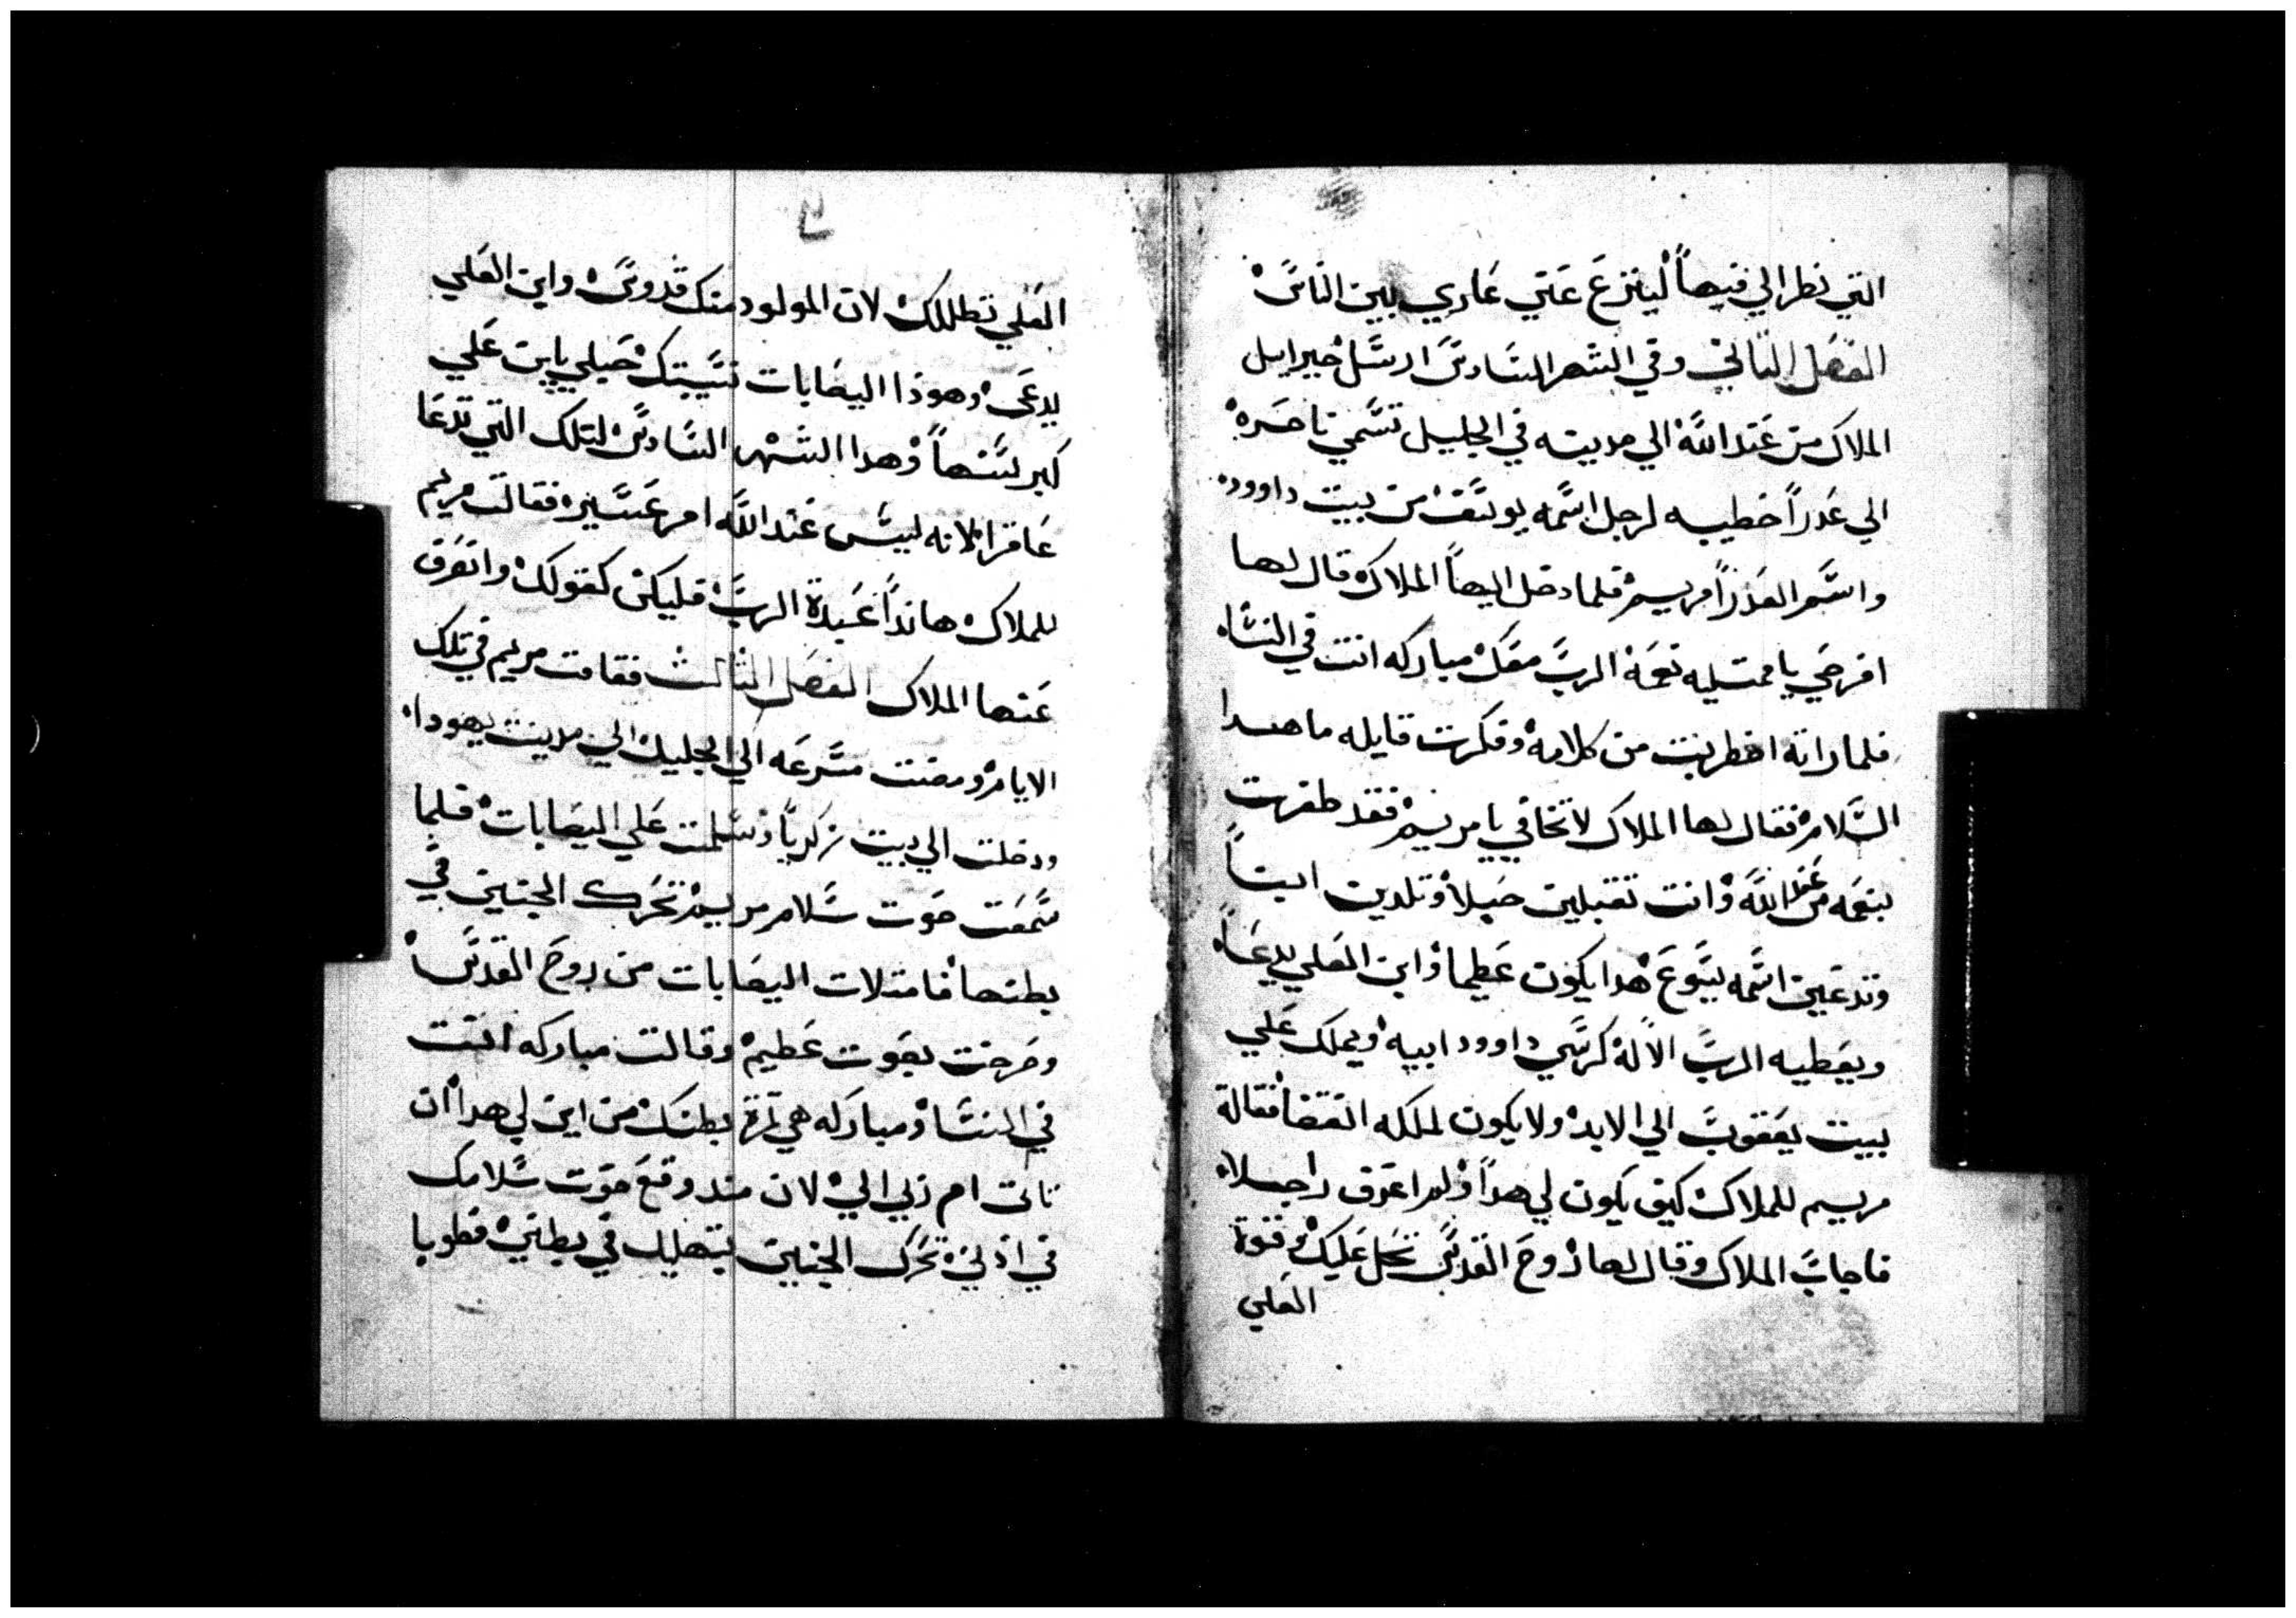 التي نظر الي فيها لينزع عني عاري بين الناس
الفصل التاني وفي الشهر السادس ارسل جبرايل
الملاك من عند الله الي مدينه في الجليل تسمي ناصره
الي عدرا خطيبه لرجل اسمه يوسف من بيت داوود
واسم العدرا مريم فلما دخل اليها الملاك قال لها
افرحي يا ممتليه نعمة الرب معك مباركه انت في النساء
فلما راته اضطربت من كلامه وفكرت قايله ما هدا
السلام فقال لها الملاك لا تخافي يا مريم فقد طفرت
بنعمه من عند الله وانت تقبلين حبلا وتلدين ابنا
وتدعين اسمه يسوع هدا يكون عظيما وابن العلي يدعا
ويعطيه الرب الاله كرسي داوود ابيه ويملك علي
بيت يعقوب الي الابد ولا يكون لملكه انقضا فقالة
مريم للملاك كيف يكون لي هدا ولم اعرف راجلا
فاجاب الملاك وقال لها روح القدس تحل عليك وقوة
العلي
العلي تظللك لان المولود منك قدوس وابن العلي
يدعي وهوذا اليصابات نسيبتك حبلي بابن علي
كبر سنها وهدا الشهر السادس لتلك التي تدعا
عاقرا لانه ليس عند الله امر عسير فقالت مريم
للملاك هاندا عبدة الرب فليكن كقولك وانصرف
عنها الملاك الفصل الثالث فقامت مريم في تلك
الايام ومضت مسرعه الي الجليل الي مدينت يهودا
ودخلت الي بيت زكريا وسلمت علي اليصابات فلما
سمعت صوت سلام مريم تحرك الجنين في
بطنها فامتلات اليصابات من روح القدس
وصرخت بصوت عظيم وقالت مباركه انت
في النسا ومباركه هي ثمرة بطنك من اين لي هدا ان
تات ام ربي الي لان مند وقع صوت سلامك
في ادني تحرك الجنين بتهليل في بطني فطوبا